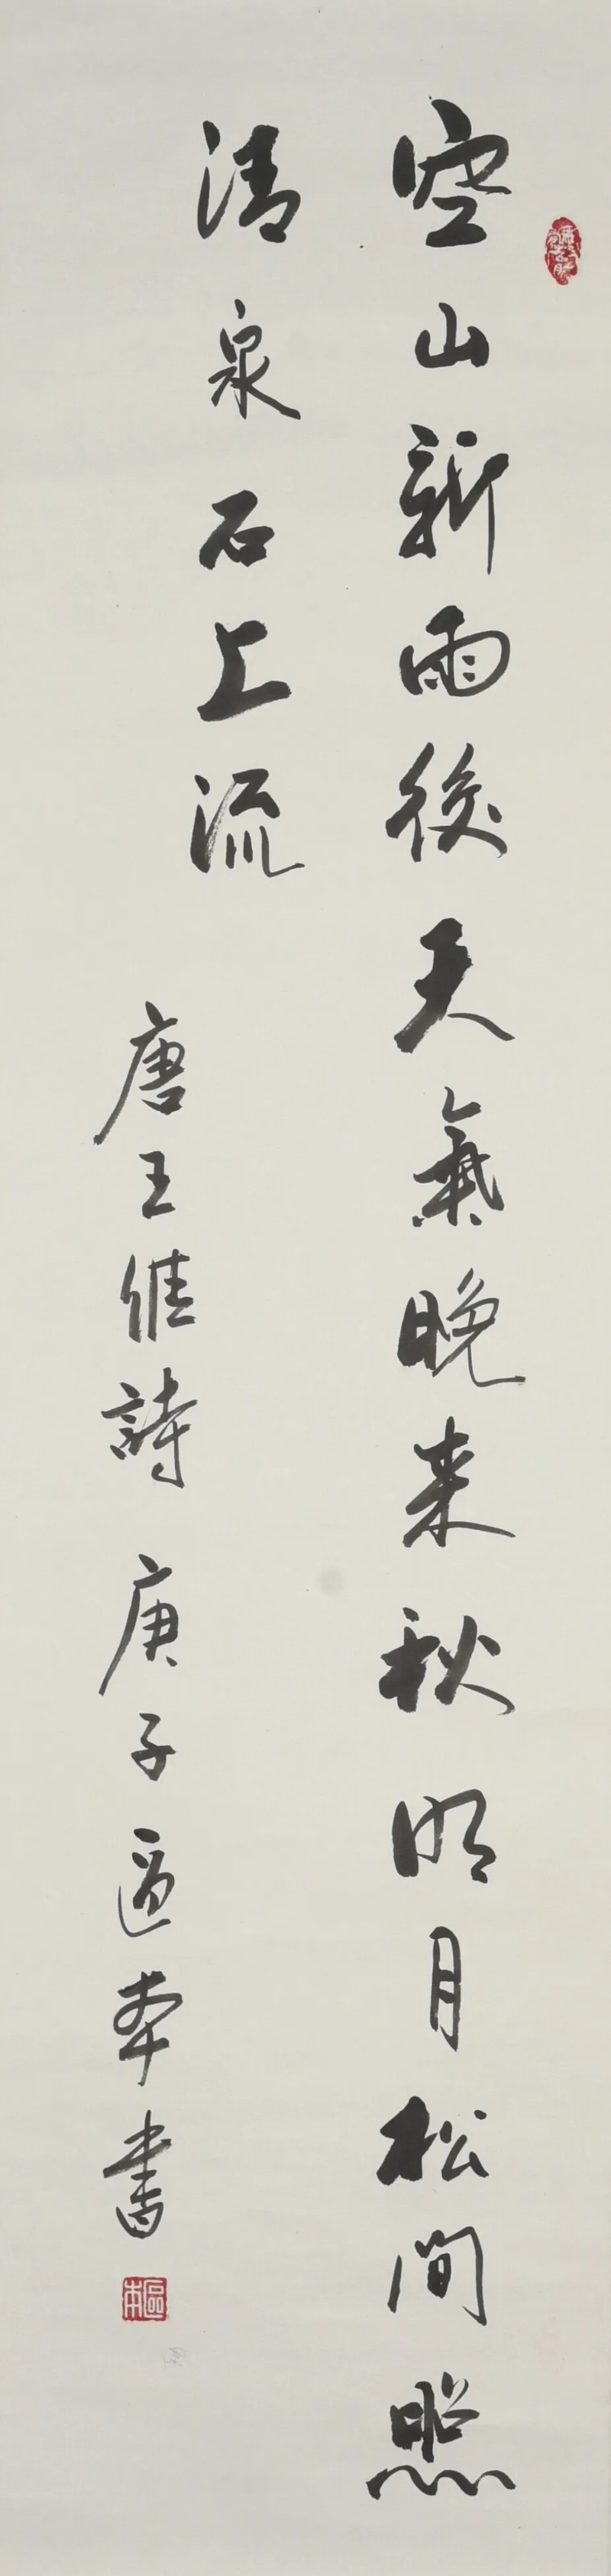 空山新雨後天氣晚来秋明月松間照
清泉石上流
唐王維詩 庚子區本書
區本